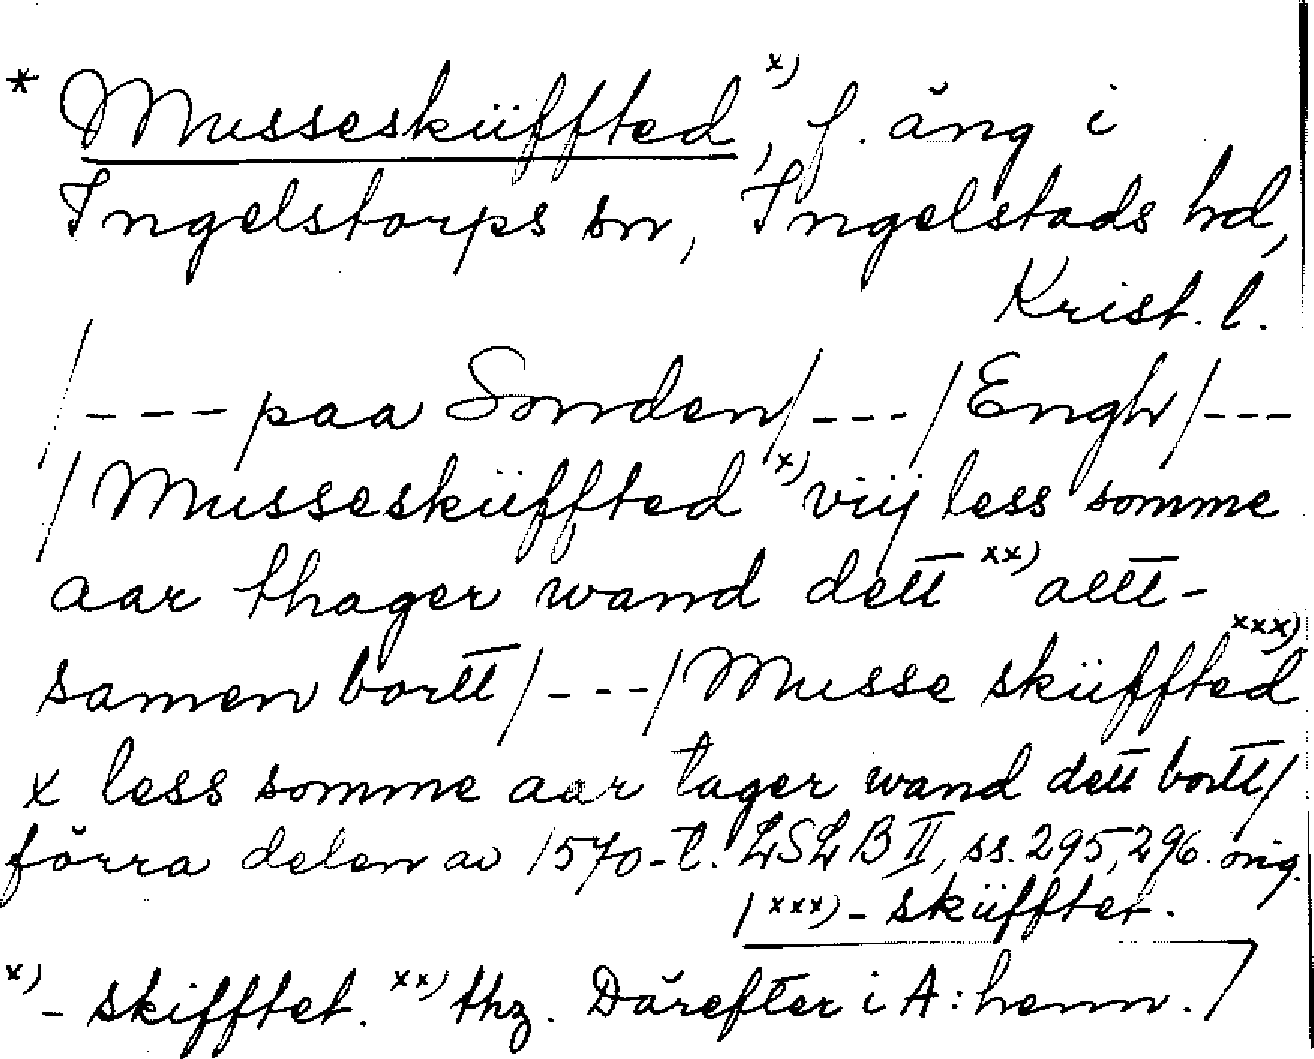 * Musseskŭffted x), f. äng i
Ingelstorps sn, Ingelstads hd,
Krist. l.
/--- paa Sonden/---/Engh/---
/Musseskŭffted x) viij less somme
aar thager wand dett xx) altt-
samen bortt/---/Musse skŭffted xxx)
x less somme aar tager wand dett bortt/
förra delen av 1570-t. LSLB II, ss. 295, 296. orig.
/xxx) - skŭffter.
x) - skifftet. xx) thz. Därefter i A: henn./